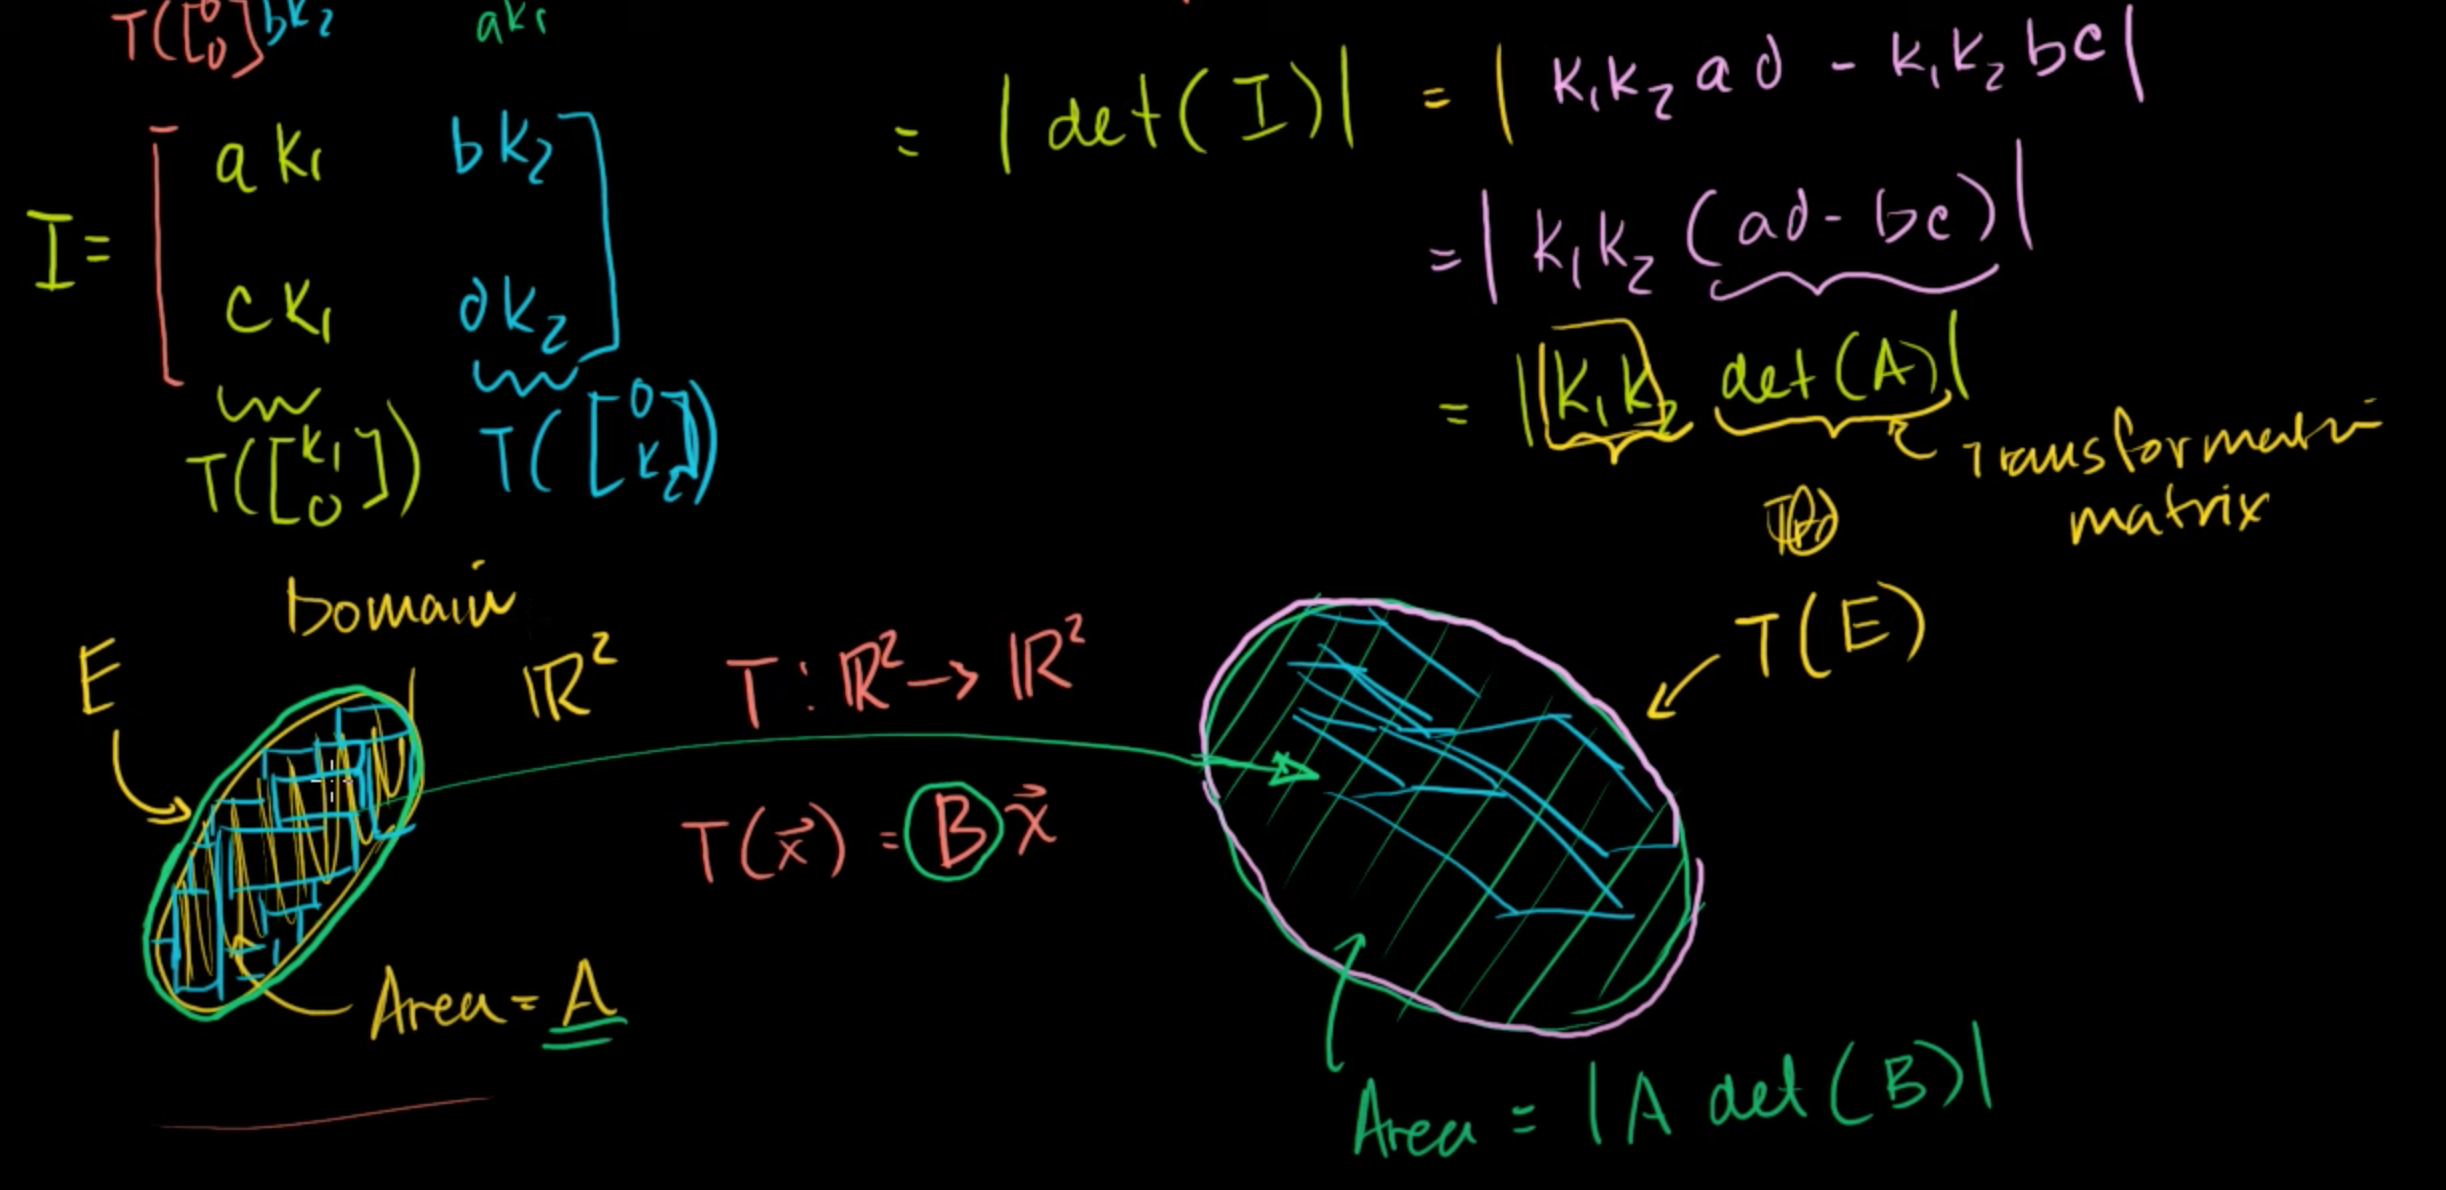 T([0 0] bk₂ ak₁
= |det(I)| = |k₁k₂ad - k₁k₂bc|
I = [ak₁ bk₂
ck₁ dk₂]
= |k₁k₂(ad-bc)|
= |k₁k₂ det(A)|
T([k₁ 0]) T([0 k₂])
Transformation
matrix
Domain
E
ℝ²
T : ℝ² → ℝ²
T(E)
T(x⃗) = Bx⃗
Area = A
Area = |A det(B)|